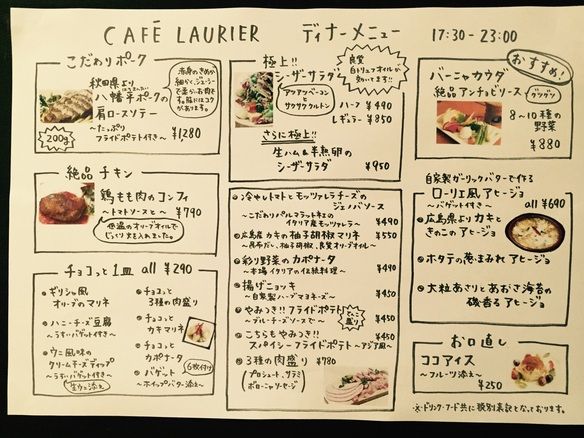 CAFÉ LAURIER ディナーメニュー 17:30-23:00
こだわりポーク
秋田県より
八幡平ポークの
肩ロースソテー
〜たっぷり
フライドポテト付き〜
¥1280
200g
赤身のきめが
細かく、ジューシー
で柔かなお肉で
す。脂にはコク
があります。
絶品 チキン
鶏もも肉のコンフィ
〜トマトソースと〜 ¥790
低温のオリーブオイルで
じっくり火を入れました。
チョコっと1皿 all ¥290
ギリシャ風
オリーブのマリネ
ハニーチーズ豆腐
〜うすいバゲット付き〜
ウニ風味の
クリームチーズディップ
〜うすいバゲット付き〜
生ウニ添え
チョコっと
3種の肉盛り
チョコっと
カキマリネ
チョコっと
カポナータ
バゲット 6枚付け
〜ホイップバター添え〜
極上!!
シーザーサラダ
良質
白トリュフオイルが
効いてます!!
アツアツベーコンと
サクサククルトン
ハーフ ¥490
レギュラー ¥850
さらに極上!!
生ハム&半熟卵の
シーザーサラダ
¥950
冷やしトマトとモッツァレラチーズの
ジェノバソース
〜こだわりパルマット社の
イタリア産モッツァレラ〜 ¥490
広島産カキの柚子胡椒マリネ ¥550
〜昆布だし、柚子胡椒、良質オリーブオイル〜
彩り野菜のカポナータ ¥490
〜本場イタリアの伝統料理〜
揚げニョッキ ¥450
〜自家製ハーブマヨネーズ〜
やみつき!!フライドポテト ¥450
〜ブルーチーズソースで〜
どっさり盛り
こちらもやみつき!! ¥450
スパイシーフライドポテト〜アジア風〜
3種の肉盛り ¥780
プロシュート、サラミ
ボローニャソーセージ
おすすめ!
バーニャカウダ
絶品アンチョビソース
グツグツ
8〜10種の
野菜
¥880
自家製ガーリックバターで作る
ローリエ風アヒージョ
〜バゲット付き〜 all ¥690
広島県よりカキと
きのこのアヒージョ
ホタテの葱まみれアヒージョ
大粒あさりとあおさ海苔の
磯香るアヒージョ
お口直し
ココアイス
〜フルーツ添え〜
¥250
※ドリンク・フード共に税別表記となっております。